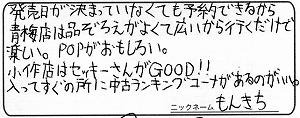 発売日が決まっていなくても予約できるから
青梅店は品ぞろえがよくて広いから行くだけで
楽しい。POPがおもしろい。
小作店はセッキーさんがGOOD!!
入ってすぐの所に中古ランキングコーナがあるのがいい。
ニックネーム もんきち